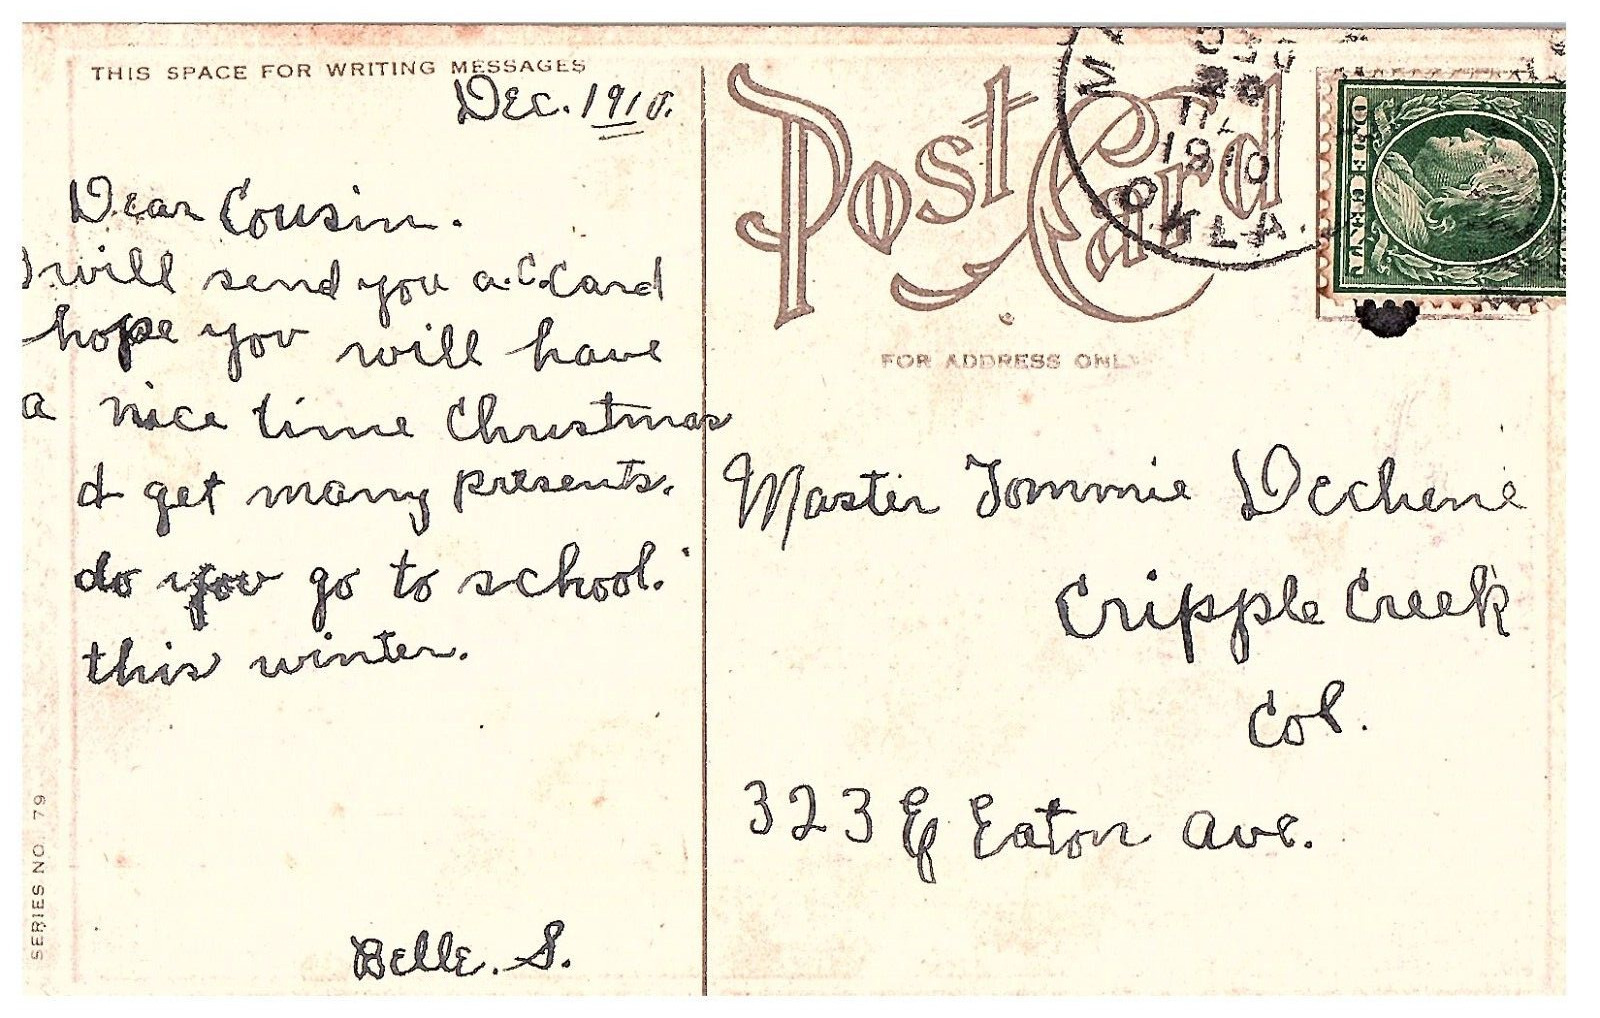 THIS SPACE FOR WRITING MESSAGES
Dec. 1910.
Dear Cousin.
I will send you a.C.Card
hope you will have
a nice time Christmas
& get many presents.
do you go to school.
this winter.
Belle. S.
SERIES NO. 79
Post Card
FOR ADDRESS ONLY
1910
OKLA.
ONE CENT
Master Tommie Dechene
Cripple Creek
Col.
323 E Eaton Ave.